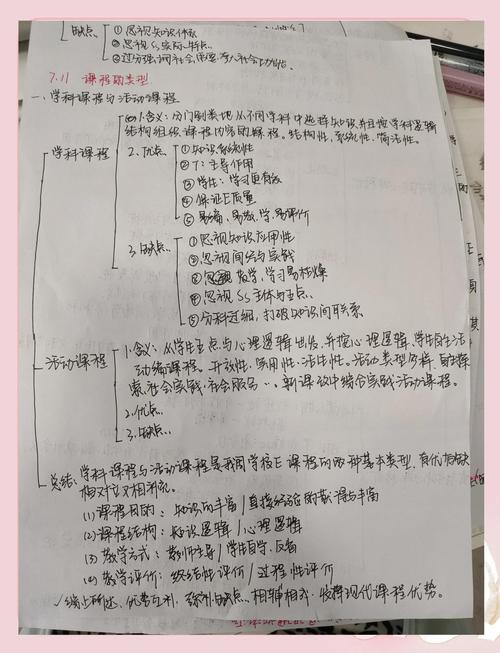 缺点 ①忽视知识体系
②忽视Ss实际、特点
③过分强调社会需要,夸大社会功能。
7.11 课程的类型
一、学科课程与活动课程
学科课程
1.含义:分门别类地从不同学科中选择知识,并且按学科逻辑
结构组织课程内容的课程。结构性,系统性,简洁性。
2.优点 ①知识系统性
②T:主导作用
③学生:学习更有效
④保证E质量
⑤易编,易教,学,易评价
3.缺点 ①忽视知识应用性
②忽视间接与实践
③忽视教学,学习易枯燥
④忽视Ss主体与互点
⑤分科过细,打破知识间联系
活动课程
1.含义:从学生互点与心理逻辑出发,并按心理逻辑,学生自生活
动编课程。开放性,实用性,活生性。活动类型多样,自主探
索,社会实践,社会服务…,新课改中综合实践活动课程。
2.优点
3.缺点
总结:学科课程与活动课程是我国学校E课程的两种基本类型,有优有缺
相对又相补充。
(1)课程目的:知识的丰富/直接经验的获得与丰富
(2)课程结构:知识逻辑/心理逻辑
(3)教学方式:教师主导/学生自学
(4)教学评价:终结性评价/过程性评价
综上所述,优势互利,弥补缺点,相辅相成,发挥现代课程优势。